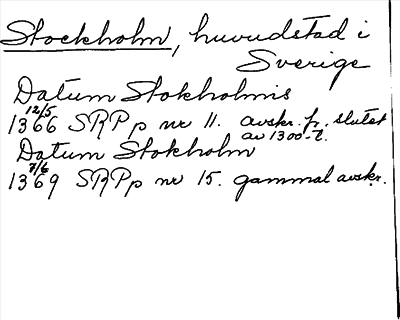 Stockholm, huvudstad i
Sverige
Datum Stokholmis
12/5
1366 SRPp nr 11. avskr. fr. slutet
av 1300-t.
Datum Stokholm
7/6
1369 SRPp nr 15. gammal avskr.